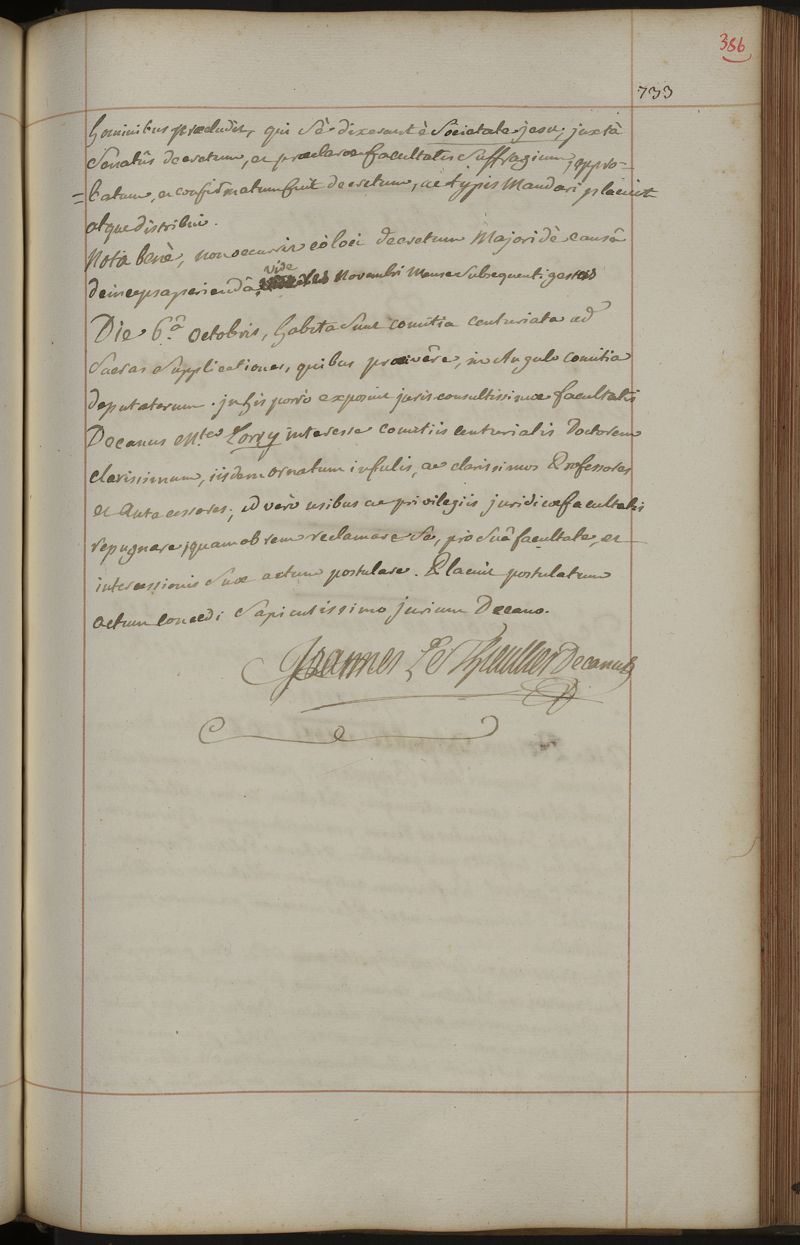 386
733
hominibus præcludit, qui sè dixerant è Societate jesu; juxtà
Senatûs decretum, et præclaræ facultatis suffragium, appro-
=batum, et confirmatum fuit decretum, ac typis Mandari placuit
atque distribui.
Nota benè, non occurrir eò loci decretum Majori dè causâ
deinceps aperiendâ. vide Novembri Mense subsequenti gesta
Die 6.â octobris, habita sunt comitia centuriata ad
Sacras Supplicationes, quibus præivêre, in Angulo comitia
deputatorum. in his porrò exposuit juris-consultissimæ facultatis
Decanus Lorry interesse comitiis centurialis Doctorem
clarissimum, iisdem ornatum infulis, ac clarissimos Professores
et Antecessores; id verò usibus ac privilegiis juridicæ facultatis
repugnare; quamobrem reclamare Sè, pro Suâ facultate, et
intercessionis suæ actum postulare. Placuit postulatum
actum concedi Sapientissimo jurium Decano.
Joannes Le Thieullier Decanus